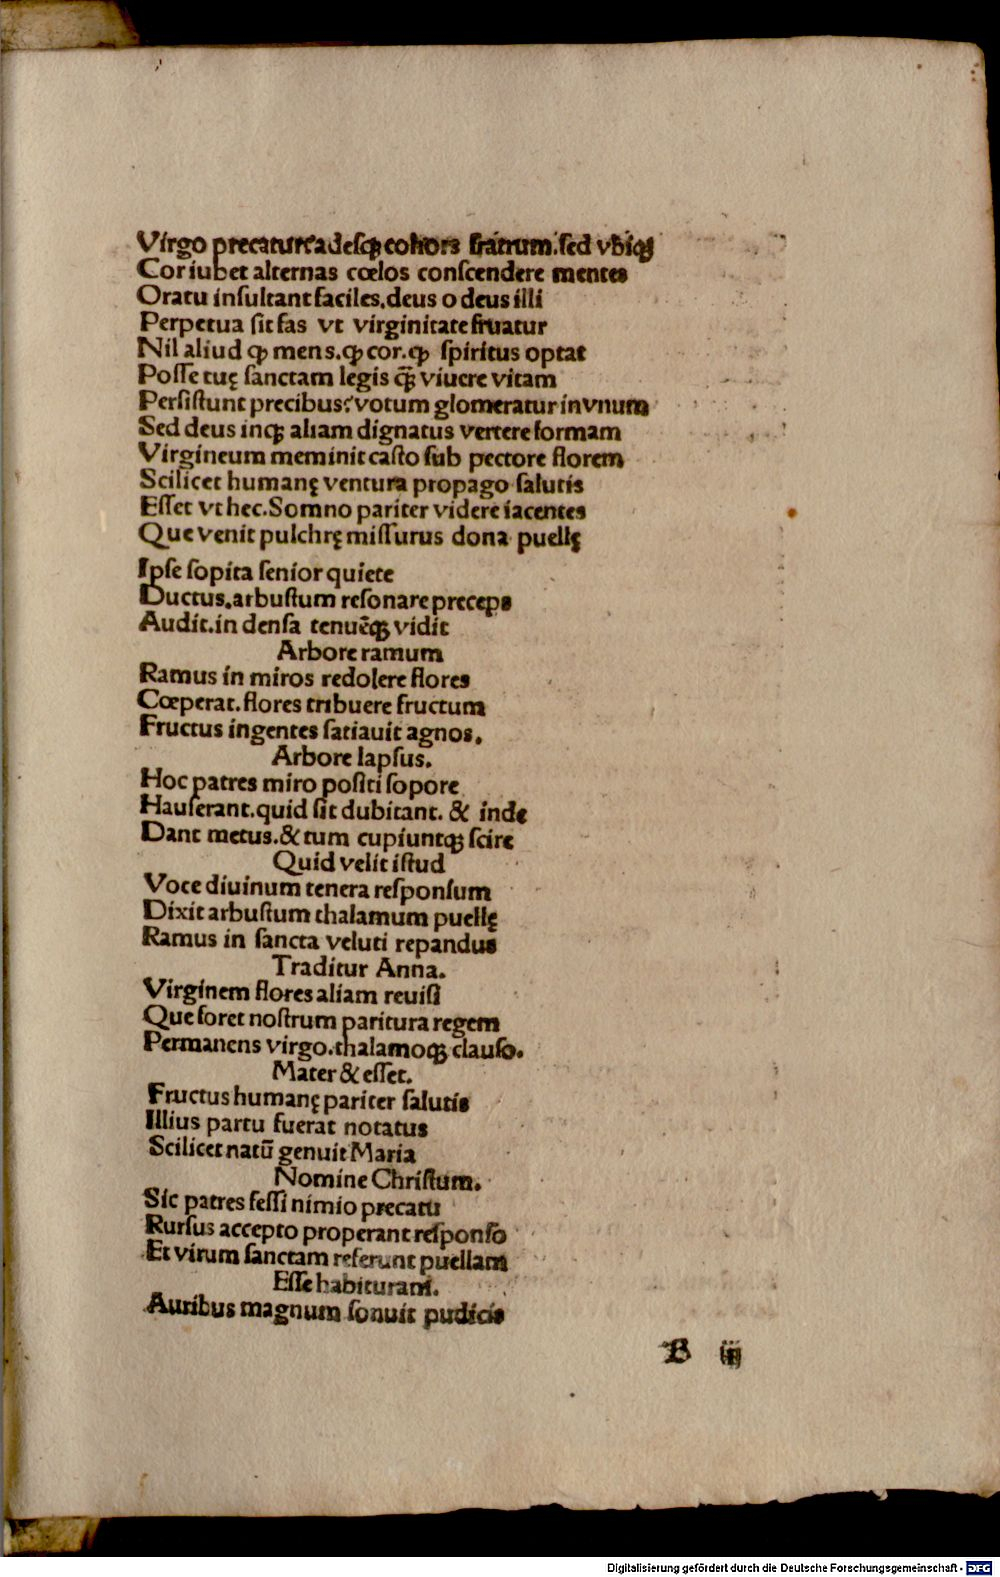 Virgo precatur: adesqꝫ cohors fratrum. sed vbiqꝫ
Cor iubet alternas cœlos conscendere mentes
Oratu insultant faciles. deus o deus illi
Perpetua sit fas vt virginitate fruatur
Nil aliud ꝙ mens. ꝙ cor. ꝙ spiritus optat
Posse tuę sanctam legis ꝙ̃ viuere vitam
Persistunt precibus: votum glomeratur in vnum
Sed deus inqꝫ aliam dignatus vertere formam
Virgineum meminit casto sub pectore florem
Scilicet humanę ventura propago salutis
Esset vt hec. Somno pariter videre iacentes
Que venit pulchrę missurus dona puellę
Ipse sopita senior quiete
Ductus. arbustum resonare preceps
Audit. in densa tenuēqꝫ vidit
Arbore ramum
Ramus in miros redolere flores
Cœperat. flores tribuere fructum
Fructus ingentes satiauit agnos.
Arbore lapsus.
Hoc patres miro positi sopore
Hauserant. quid sit dubitant. & inde
Dant metus. & tum cupiuntqꝫ scire
Quid velit istud
Voce diuinum tenera responsum
Dixit arbustum thalamum puellę
Ramus in sancta veluti repandus
Traditur Anna.
Virginem flores aliam reuisi
Que foret nostrum paritura regem
Permanens virgo. thalamoqꝫ clauso.
Mater & esset.
Fructus humanę pariter salutis
Illius partu fuerat notatus
Scilicet natū genuit Maria
Nomine Christum.
Sic patres fessi nimio precatu
Rursus accepto properant responso
Et virum sanctam referunt puellam
Esse habituram.
Auribus magnum sonuit pudicis
B iij
Digitalisierung gefördert durch die Deutsche Forschungsgemeinschaft - DFG